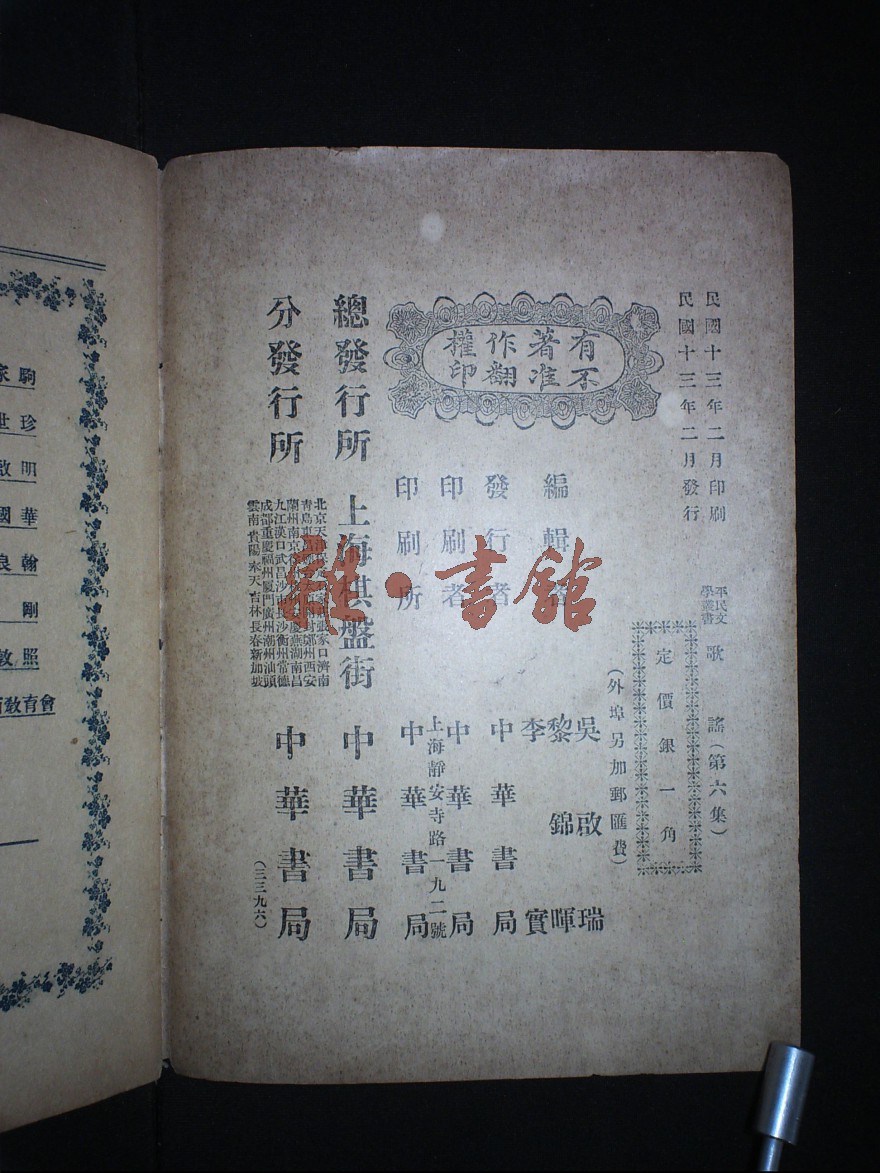 民國十三年二月印刷
民國十三年二月發行
平民文學叢書 歌謠（第六集）
定價銀一角
（外埠另加郵匯費）
有著作權
不准翻印
編輯者 吳啟瑞
黎錦暉
李實
發行者 中華書局
印刷者 中華書局
上海靜安寺路一九二號
印刷所 中華書局
總發行所 上海棋盤街 中華書局
分發行所
北京天 張家口濟南
青島東 鄭州西安
蘭州南京 慶蕪湖南昌
九江漢口武昌 沙衡州常德
成都重慶福州廈門廣州潮州汕頭
雲南貴陽奉天吉林長春新加坡
中華書局
（三三九六）
雜·書館
家駒
世珍
啟明
國華
良翰
剛
敦照
教育會